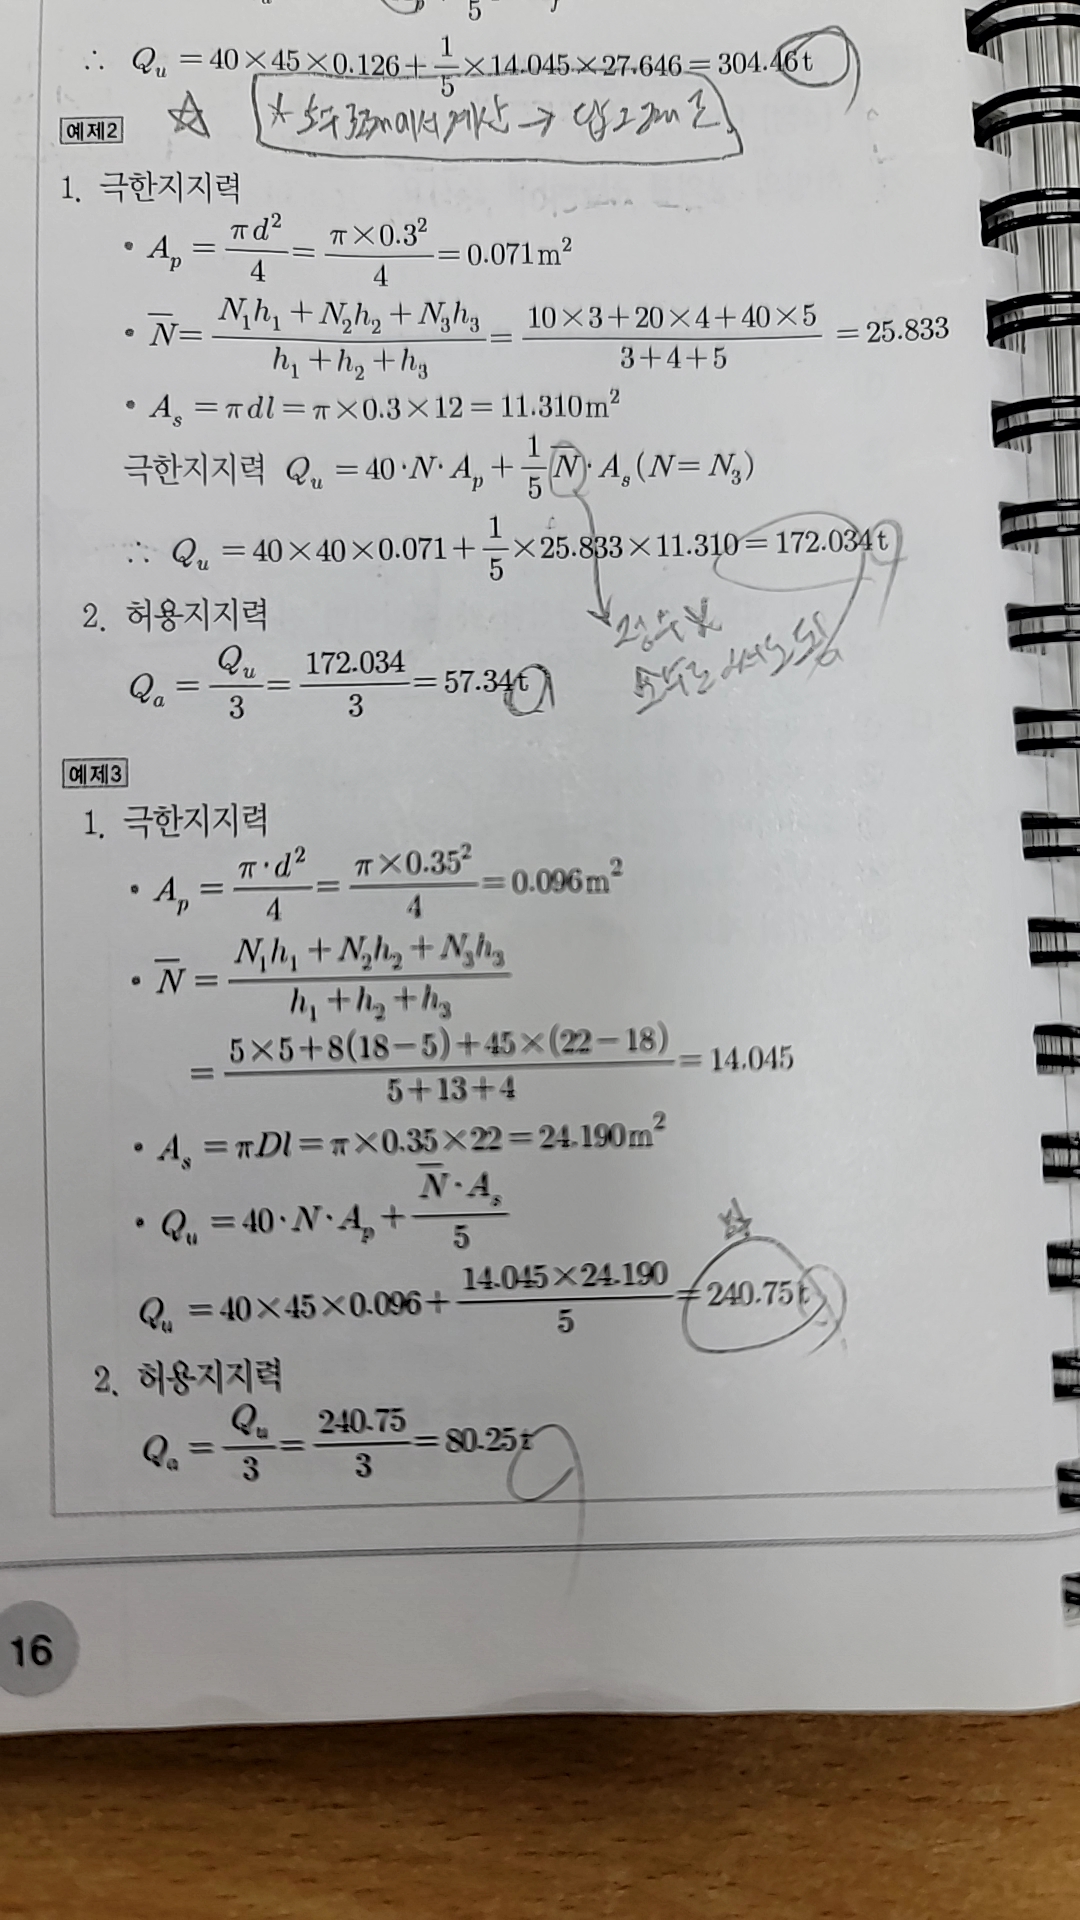 ∴ Q_u = 40×45×0.126+1/5×14.045×27.646=304.46t
예제2
1. 극한지지력
• A_p = πd²/4 = π×0.3²/4 = 0.071m²
• N̅ = (N₁h₁+N₂h₂+N₃h₃)/(h₁+h₂+h₃) = (10×3+20×4+40×5)/(3+4+5) = 25.833
• A_s = πdl = π×0.3×12 = 11.310m²
극한지지력 Q_u = 40·N·A_p + 1/5 N̅·A_s (N=N₃)
∴ Q_u = 40×40×0.071+1/5×25.833×11.310=172.034t
2. 허용지지력
Q_a = Q_u/3 = 172.034/3 = 57.34t
예제3
1. 극한지지력
• A_p = π·d²/4 = π×0.35²/4 = 0.096m²
• N̅ = (N₁h₁+N₂h₂+N₃h₃)/(h₁+h₂+h₃)
= (5×5+8(18−5)+45×(22−18))/(5+13+4) = 14.045
• A_s = πDl = π×0.35×22 = 24.190m²
• Q_u = 40·N·A_p + N̅·A_s/5
Q_u = 40×45×0.096+14.045×24.190/5 = 240.75t
2. 허용지지력
Q_a = Q_u/3 = 240.75/3 = 80.25t
16